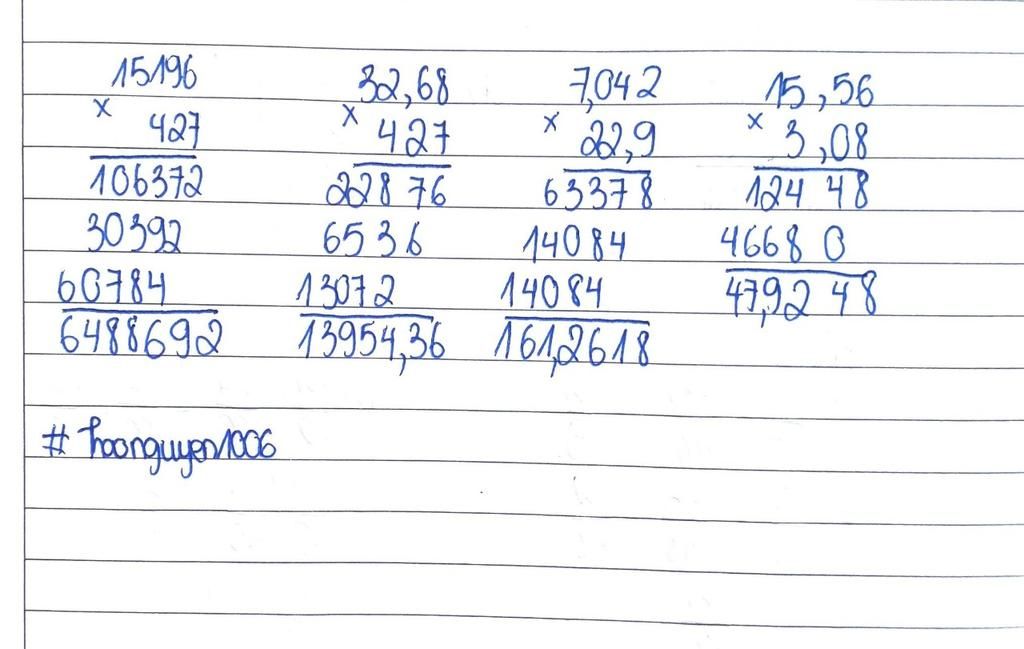 15196 32,68 7,042 15,56
x 427 x 427 x 22,9 x 3,08
106372 22876 63378 12448
30392 6536 14084 46680
60784 13072 14084 47,9248
6488692 13954,36 161,2618
# hoonguyen1006